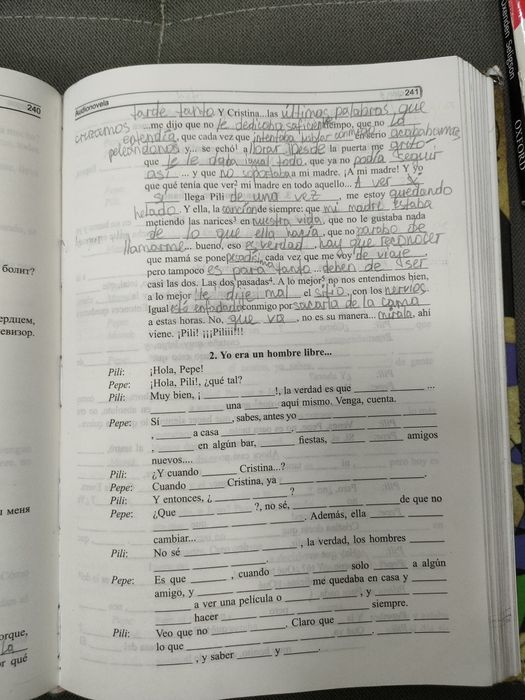 240
Audionovela
241
tarde tanto Y Cristina...las últimas palabras que
cruzamos ...me dijo que no le dedicaba suficiente tiempo, que no la
entendía, que cada vez que intentaba hablar conmigo en serio acabábamos
peleándonos y... se echó¹ a llorar. Desde la puerta me gritó
que le daba igual todo, que ya no podía seguir
así... y que no soportaba a mi madre. ¡A mi madre! Y yo
que qué tenía que ver² mi madre en todo aquello... A ver
si llega Pili de una vez, me estoy quedando
helado. Y ella, la canción de siempre: que mi madre estaba
metiendo las narices³ en nuestra vida, que no le gustaba nada
de lo que ella hacía, que no paraba de
llamarme... bueno, eso es verdad, hay que reconocer
que mamá se pone cada vez que me voy de viaje
pero tampoco es para tanto... deben de ser
casi las dos. Las dos pasadas⁴. A lo mejor⁵ no nos entendimos bien,
a lo mejor le dije mal el sitio, con los nervios.
Igual está enfadado conmigo por sacarla de la cama
a estas horas. No, que va, no es su manera... mírala, ahí
viene. ¡Pili! ¡¡¡Piliii!!!
2. Yo era un hombre libre...
Pili: ¡Hola, Pepe!
Pepe: ¡Hola, Pili!, ¿qué tal?
Pili: Muy bien, ¡ !, la verdad es que ...
una aquí mismo. Venga, cuenta.
Pepe: Sí , sabes, antes yo
, a casa
, en algún bar, fiestas, amigos
nuevos....
Pili: ¿Y cuando Cristina...?
Pepe: Cuando Cristina, ya .
Pili: Y entonces, ¿ ?
Pepe: ¿Que ?, no sé, de que no
. Además, ella
cambiar...
Pili: No sé , la verdad, los hombres
.
Pepe: Es que , cuando solo a algún
amigo, y me quedaba en casa y
a ver una película o , y
hacer siempre.
Pili: Veo que no . Claro que
lo que . ,
, y saber y .
болит?
ердцем,
евизор.
меня
orque,
la
r qué
Seligson
OXFORD